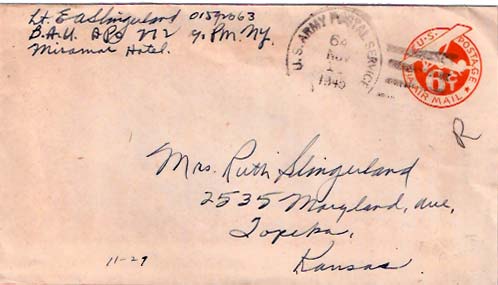 Lt. E A Slingerland 01592063
B.A.U. APO 772 % P.M. N.Y.
Miramar Hotel.
U.S. ARMY POSTAL SERVICE
64
NOV
1945
U.S. POSTAGE
AIR MAIL
6¢
R
Mrs. Ruth Slingerland
2535 Maryland, ave,
Topeka,
Kansas.
11-29